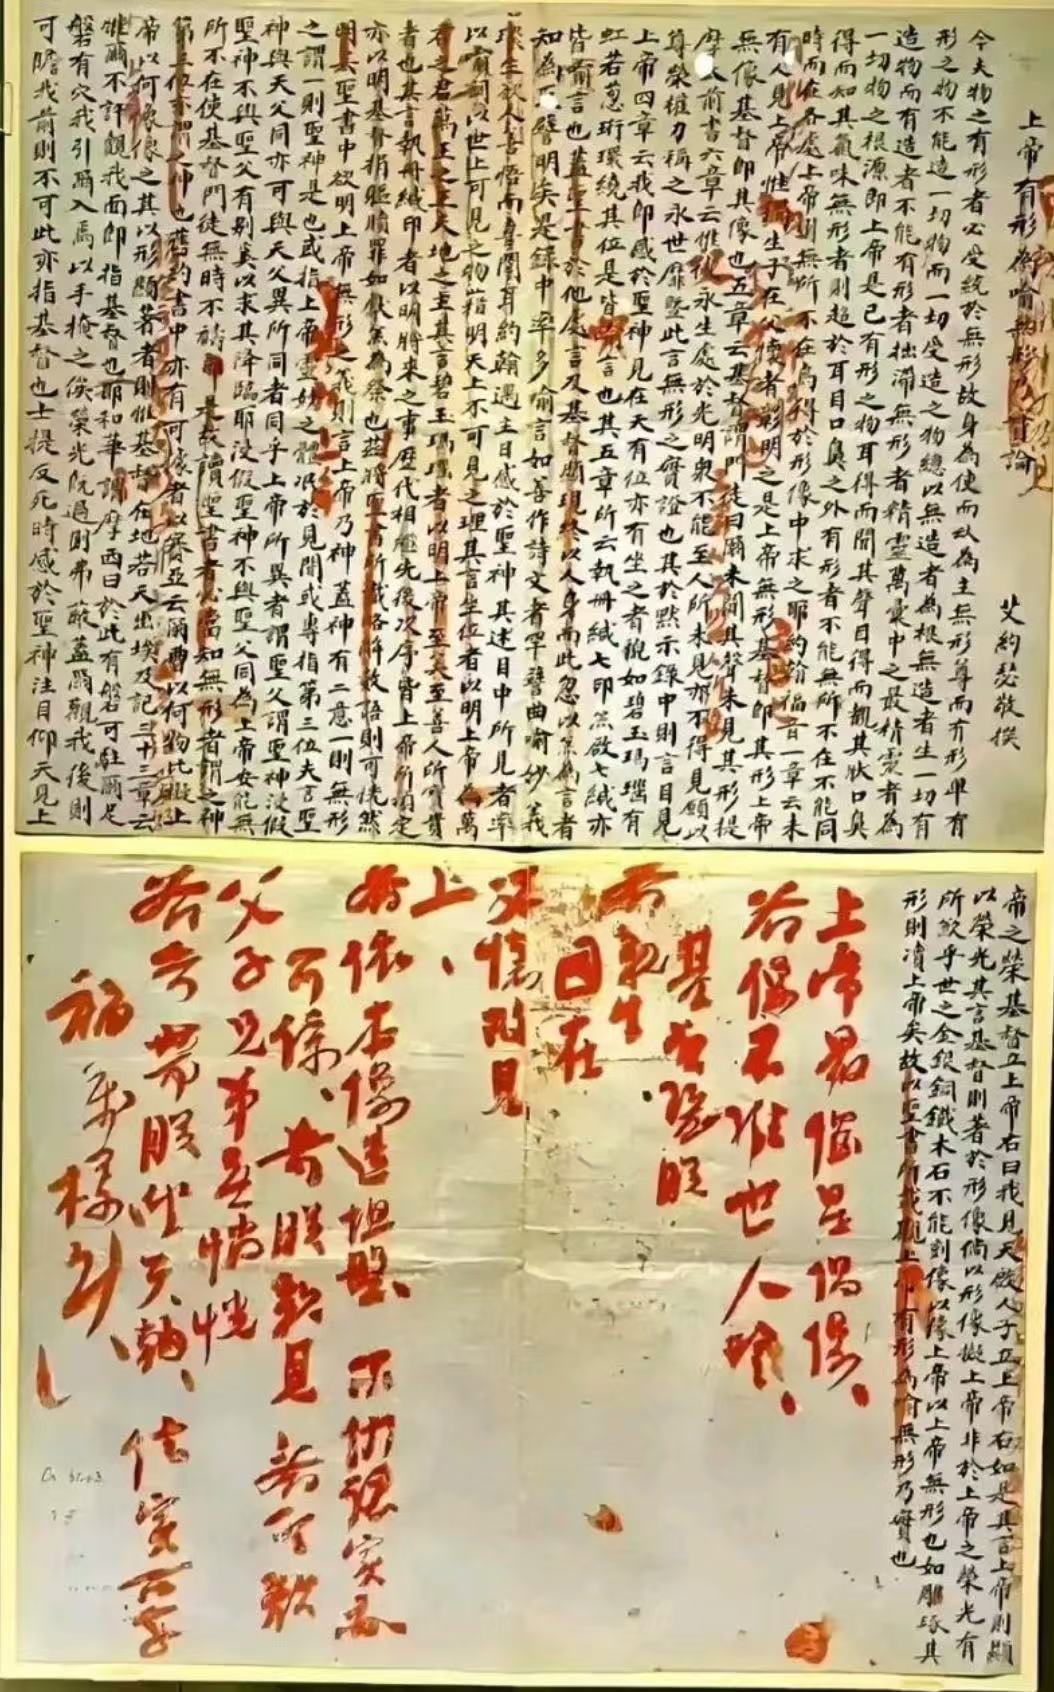 上帝有形為喻無形乃實論
艾約瑟敬撰
今夫物之有形者必受統於無形故身為使而神為主無形尊而有形卑有
形之物不能造一切物而一切受造之物總以無造者為根無造者生一切有
造物而有造者不能有形者拙滯無形者精靈萬彙中之最精靈者為
一切物之根源即上帝是已有形之物耳得而聞其聲目得而觀其狀口鼻
得而知其氣味無形者則超於耳目口鼻之外有形者不能無所不在不能同
時而在各處上帝則無所不在烏得於形像中求之耶約翰福音一章云未
有人見上帝惟獨生子在父懷者彰明之是上帝無形基督即其形上帝
無像基督即其像也五章云基督謂門徒曰爾未聞其聲未見其形提
摩太前書六章云惟彼永生處於光明衆不能至人所未見亦不得見願以
尊榮權力稱之永世靡曁此言無形之實證也其於默示錄中則言目見
上帝四章云我即感於聖神見在天有位亦有坐之者觀如碧玉瑪瑙有
虹若蔥珩環繞其位是皆喻言也其五章所云執冊緘七印羔啟七緘亦
皆喻言也蓋聖書於他處言及基督顯現終以人身而此忽以羔為言者
知為取譬明矣是錄中率多喻言如善作詩文者罕譬曲喻妙義
環生欲人善悟而喜聞耳約翰遇主日感於聖神其述目中所見者率
以喻詞以世上可見之物藉明天上不可見之理其言坐位者以明上帝為萬
有之君萬王之王天地之主其言碧玉瑪瑙者以明上帝至美至善人所寶貴
者也其言執冊緘印者以明將來之事歷代相繼先後次序皆上帝所預定
亦以明基督捐軀贖罪如獻羔為祭也茲將聖書所載略解數語則可恍然
明矣聖書中欲明上帝無形之義則言上帝乃神蓋神有二意一則無形
之謂一則聖神是也或指上帝靈妙之體泯於見聞或專指第三位夫言聖
神與天父同亦可與天父異所同者同乎上帝所異者謂聖父謂聖神設假
聖神不與聖父有別奚以求其降臨耶設假聖神不與聖父同為上帝安能無
所不在使基督門徒無時不禱耶是故讀聖書者當知無形者謂之神
第三位亦謂之神也舊約書中亦有可據者以賽亞云爾曹以何物比擬上
帝以何像像之其以形顯著者則惟基督在地若天出埃及記三十三章云
惟爾不許觀我面即指基督也耶和華謂摩西曰於此有磐可駐爾足
磐有穴我引爾入焉以手掩之俟榮光既過則弗蔽蓋爾觀我後則
可瞻我前則不可此亦指基督也士提反死時感於聖神注目仰天見上
帝之榮基督立上帝右曰我見天啟人子立上帝右如是其言上帝則顯
以榮光其言基督則著於形像倘以形像擬上帝非於上帝之榮光有
所歉乎世之金銀銅鐵木石不能刻像以像上帝以上帝無形也如雕琢其
形則瀆上帝矣故以聖書所載觀上帝有形為喻無形乃實也
上帝最惱是偶像
爺像不准世人望
基督暨朕
爺親生
因在
父懷故見
上
爺依本像造坦盤 爾們認實尚
可諒 前朕親見爺聖顏
父子兄弟無惝恍
爺哥帶朕坐天朝 信實可享
福萬樣